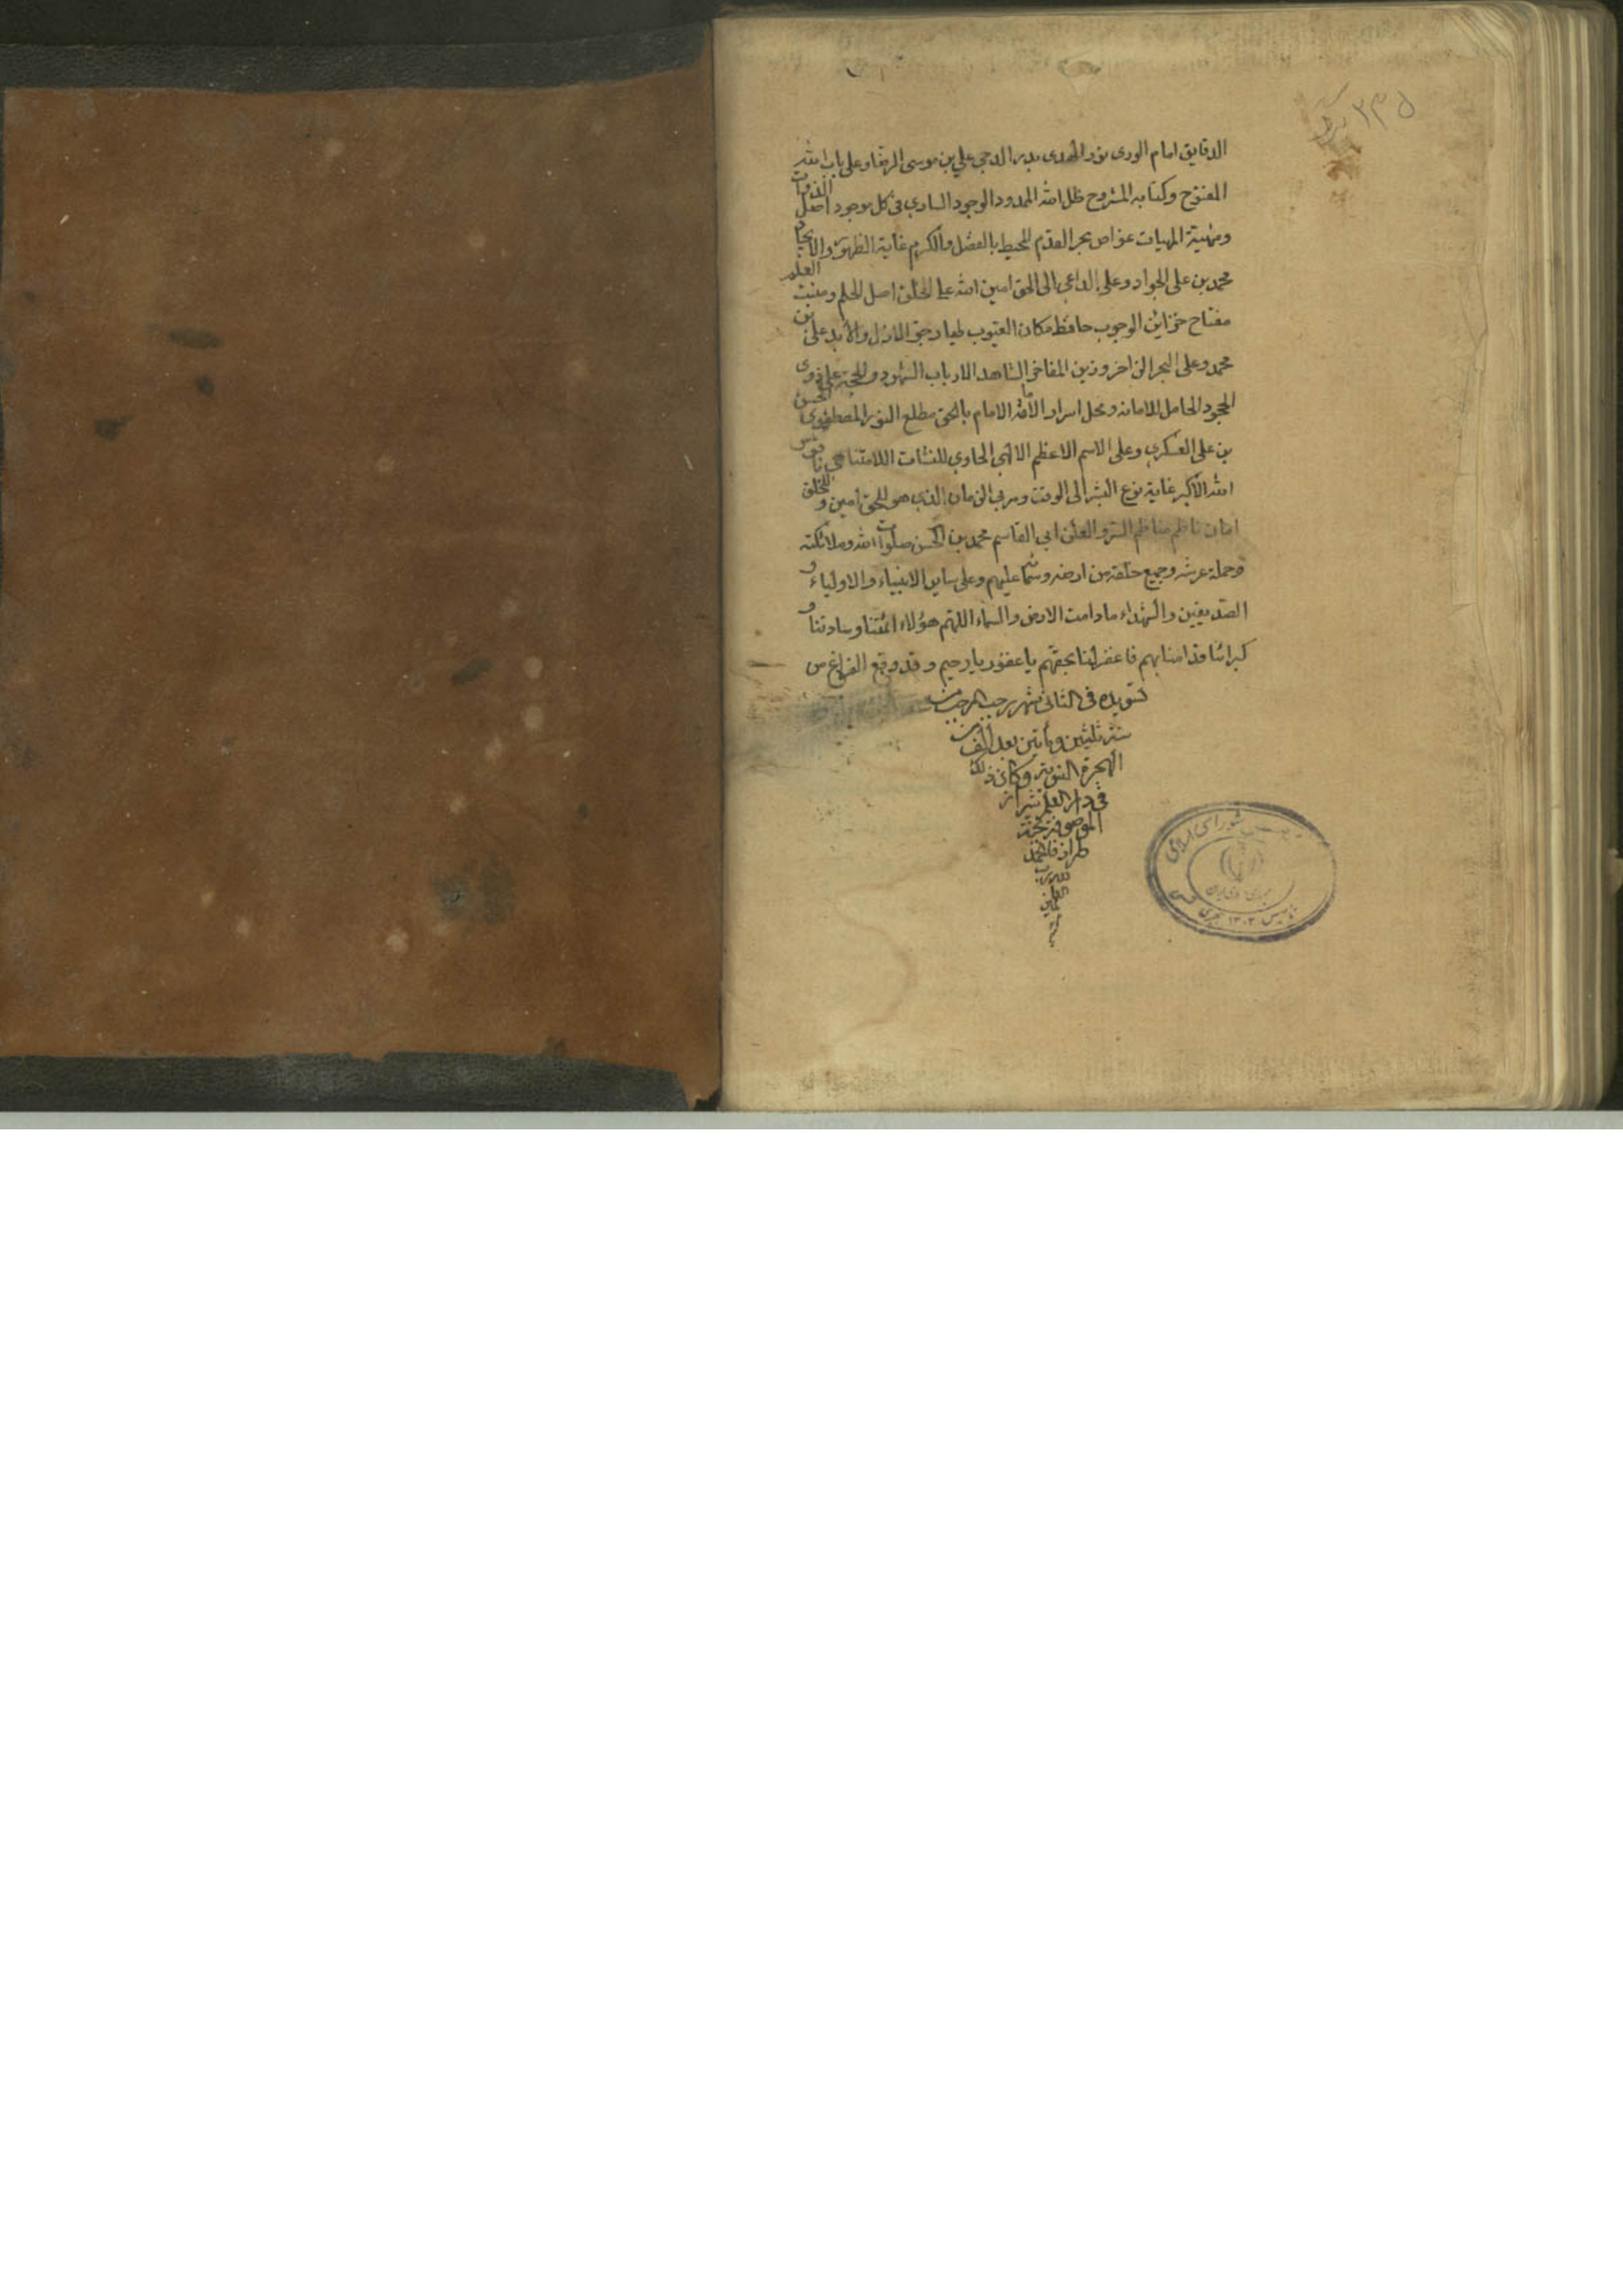 ۲۳۵
الدقایق امام الوری نور الهدی بدر الدجی علی بن موسی الرضا وعلی باب الله
المفتوح وکتابه المشروح ظل الله الممدود الوجود الساری فی کل موجود اصل الذوات
ومهیة المهیات غواص بحر القدم المحیط بالفضل والکرم غایة الظهور والایجاد
محمد بن علی الجواد وعلی الداعی الی الحق امین الله علی الخلق اصل الحلم ومنبت العلم
مفتاح خزاین الوجوب حافظ مکان الغیوب طیار جو الازل والابد علی بن
محمد وعلی البحر الزاخر وزین المفاخر الشاهد لارباب الشهود والحجة علی ذوی
الجحود الحامل للامانة ومحل اسرار الامامة الامام بالحق مطلع النور المصطفوی الحسن
بن علی العسکری وعلی الاسم الاعظم الالهی الحاوی للنشات اللامتناهی ناموس
الله الاکبر غایة نوع البشر الی الوقت ومربی الزمان الذی هو للحق امین وللخلق
امان ناظم مناظم السر والعلن ابی القاسم محمد بن الحسن صلوات الله وملائکته
وحملة عرشه وجمیع خلقه من ارضه وسمائه علیهم وعلی سایر الانبیاء والاولیاء و
الصدیقین والشهداء مادامت الارض والسماء اللهم هؤلاء ائمتنا وساداتنا و
کبرائنا قد امنا بهم فاغفر لنا بحقهم یا غفور یا رحیم وقد وقع الفراغ من
تسویده فی الثانی شهر رجب المرجب من
سنة ثلثین ومأتین بعد الف من
الهجرة النبویة وکان ذلک
فی دار العلم شیراز
الموصوفة بجنة
طراز فالحمد
لله رب
العالمین
مجلس شورای اسلامی
جمهوری اسلامی ایران
تاسیس ۱۳۰۲ هجری شمسی